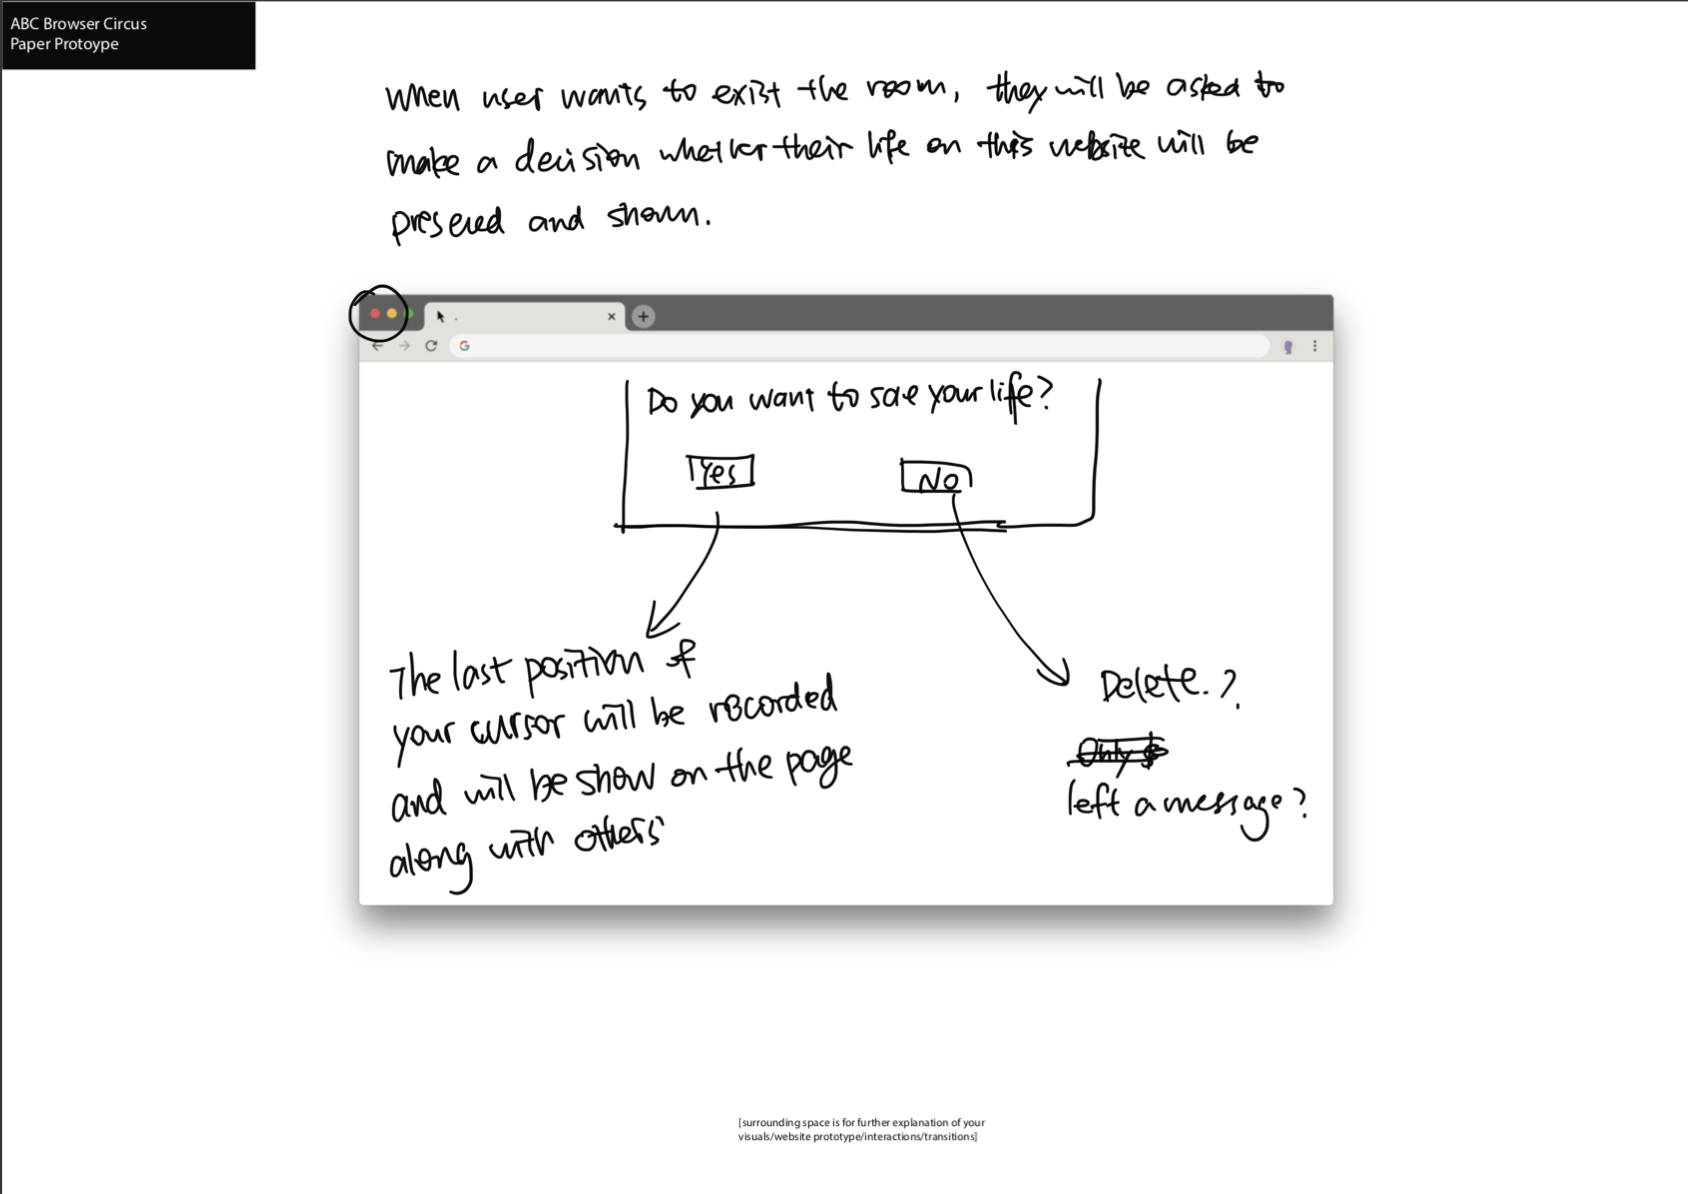 ABC Browser Circus
Paper Protoype
When user wants to exist the room, they will be asked to
make a decision whether their life on this website will be
presered and shown.
Do you want to save your life?
Yes
No
The last position of
your cursor will be recorded
and will be show on the page
along with others'
Delete.?
Only
left a message?
[surrounding space is for further explanation of your
visuals/website prototype/interactions/transitions]